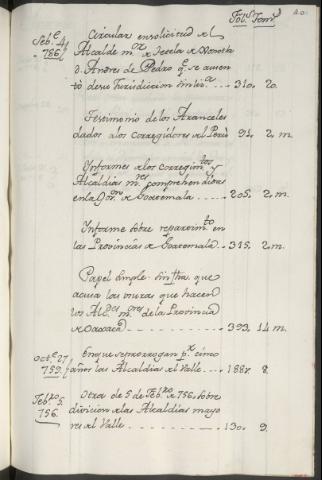 Fol.s Tom.s
20.
Feb.o 4/
786.
Circular en solicitud del
Alcalde m.or de Tecela de Nonota
d. Andres de Pedro q.e se ausen
tó de su Jurisdicion sin liz.a ... 310. 20.
Testimonio de los Aranceles
dados a los Corregidores del Perù 91. 2. m.
Ynformes de los corregim.tos y
Alcaldias m.res comprehendidas
en la Gov.on de Goatemala .... 205. 2. m.
Informe sobre repartim.to en
las Provincias de Goatemala .. 315. 2. m.
Papel simple sin fha. que
acusa las usuras que hacen
los Alc.des m.ores de la Provincia
de Oaxaca ---------- 393. 14 m.
Oct.e 27
759.
En que se prorrogan p.r cinco
años las Alcaldias del Valle ... 188. 8.
Feb.ro 5.
756.
Otra de 5 de Feb.ro de 756. sobre
division de las Alcaldias mayo
res del Valle ------- 130. 9.